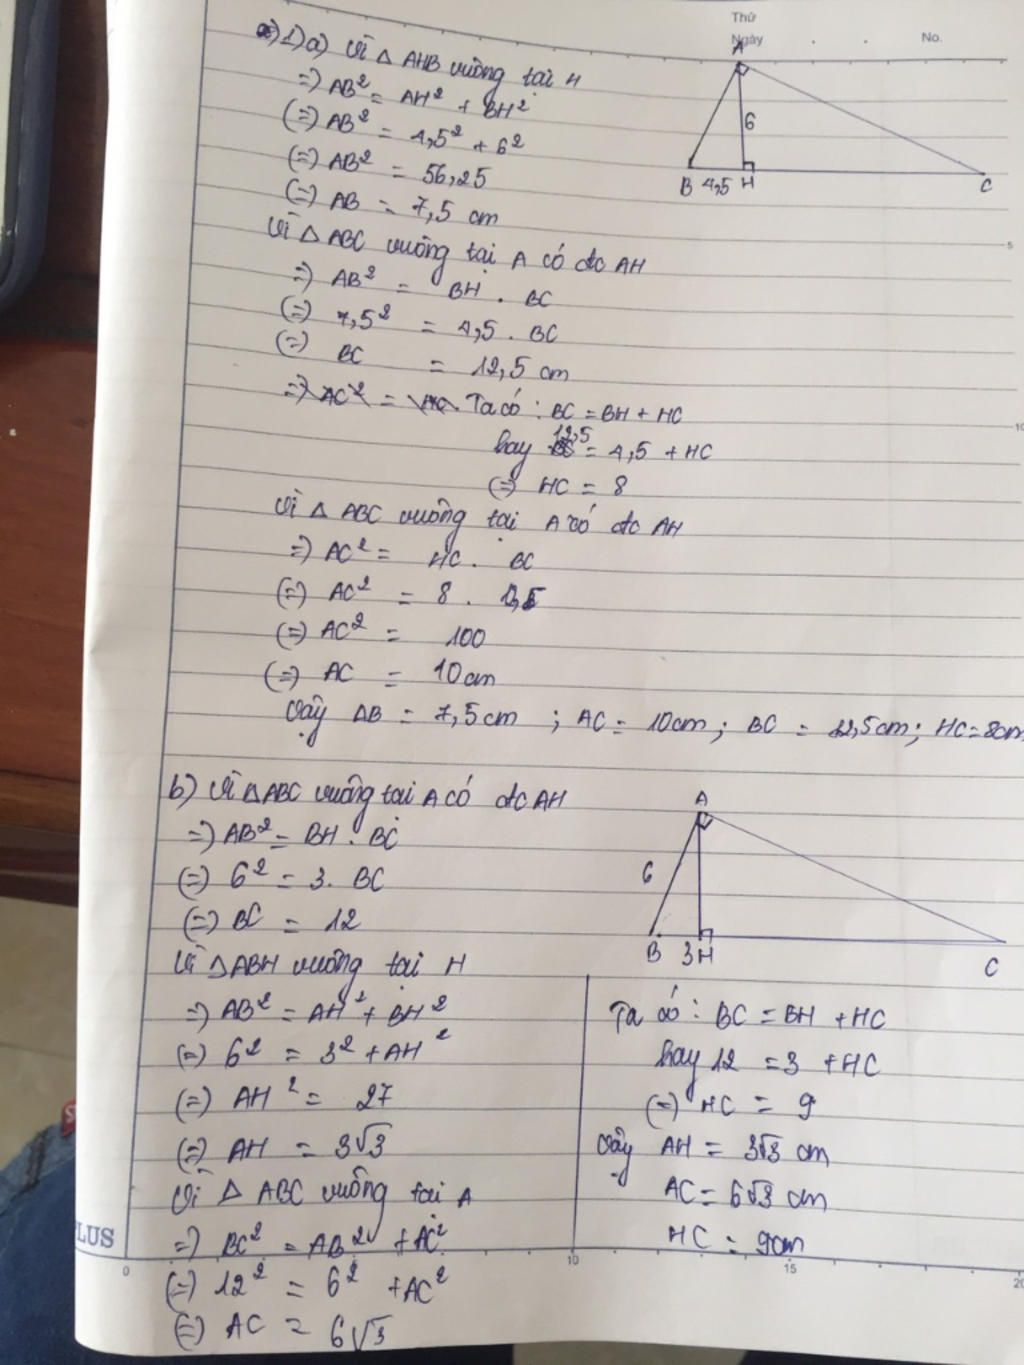 Thứ
Ngày No.
1) a) Vì △ AHB vuông tại H
=) AB² = AH² + BH²
(=) AB² = 4,5² + 6²
(=) AB² = 56,25
(=) AB = 7,5 cm
Vì △ ABC vuông tại A có đc AH
=) AB² = BH . BC
(=) 7,5² = 4,5 . BC
(=) BC = 12,5 cm
Ta có : BC = BH + HC
hay 12,5 = 4,5 + HC
(=) HC = 8
Vì △ ABC vuông tại A có đc AH
=) AC² = HC . BC
(=) AC² = 8 .
(=) AC² = 100
(=) AC = 10cm
Vậy AB = 7,5cm ; AC = 10cm ; BC = 12,5cm ; HC = 8cm
A
6
B 4,5 H C
5
10
b) Vì △ABC vuông tại A có đc AH
=) AB² = BH . BC
(=) 6² = 3. BC
(=) BC = 12
Vì △ABH vuông tại H
=) AB² = AH² + BH²
(=) 6² = 3² + AH²
(=) AH² = 27
(=) AH = 3√3
Vì △ ABC vuông tại A
=) BC² = AB² + AC²
(=) 12² = 6² + AC²
(=) AC = 6√3
A
6
B 3 H C
Ta có : BC = BH + HC
hay 12 = 3 + HC
(=) HC = 9
Vậy AH = 3√3 cm
AC = 6√3 cm
HC = 9cm
LUS
0 10 15 20